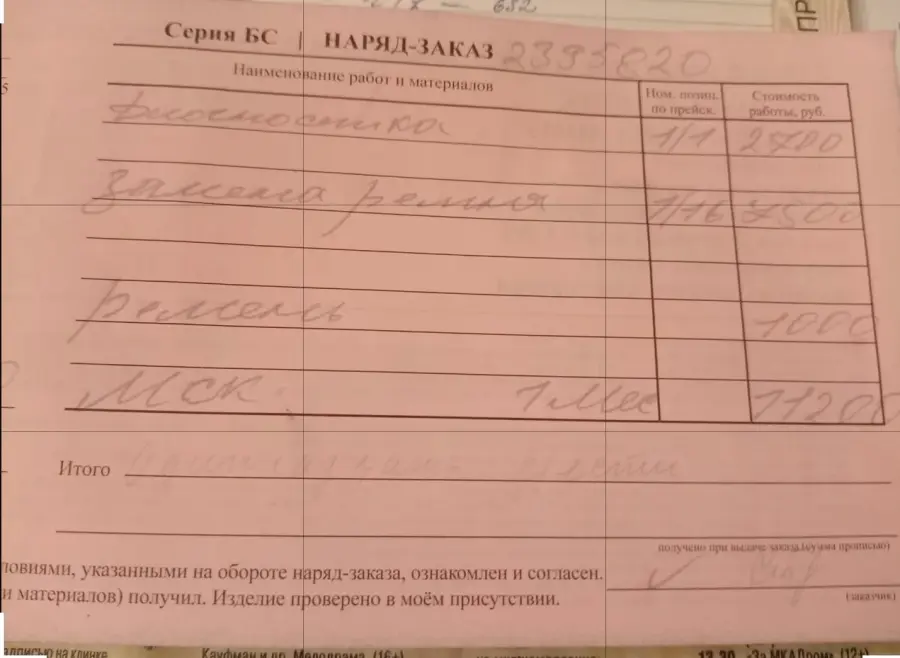 — 632
ПР
Серия БС | НАРЯД-ЗАКАЗ 2395820
Наименование работ и материалов
Ном. позиц. по прейск.
Стоимость работы, руб.
Диагностика 1/1 2700
Замена ремня 1/16 7500
ремень 1000
МСК 1 мес 11200
Итого
получено при выдаче заказа (сумма прописью)
ловиями, указанными на обороте наряд-заказа, ознакомлен и согласен.
и материалов) получил. Изделие проверено в моём присутствии.
(заказчик)
адписью на клинке
Кауфман и др. Мелодрама. (16+)
13.30 «За МКАДом» (12+)